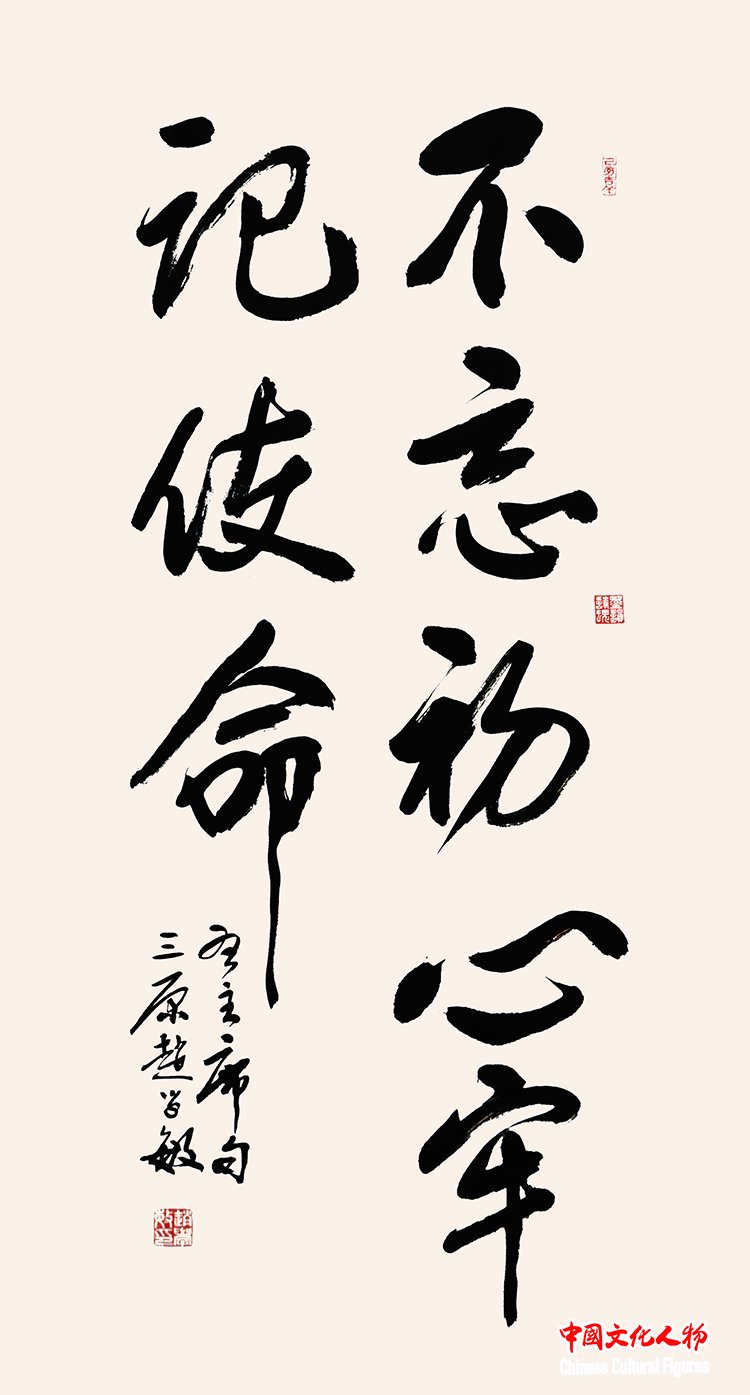 不忘初心牢
记使命
主席句
三原趙学敏
趙學敏印
中國文化人物
Chinese Cultural Figures